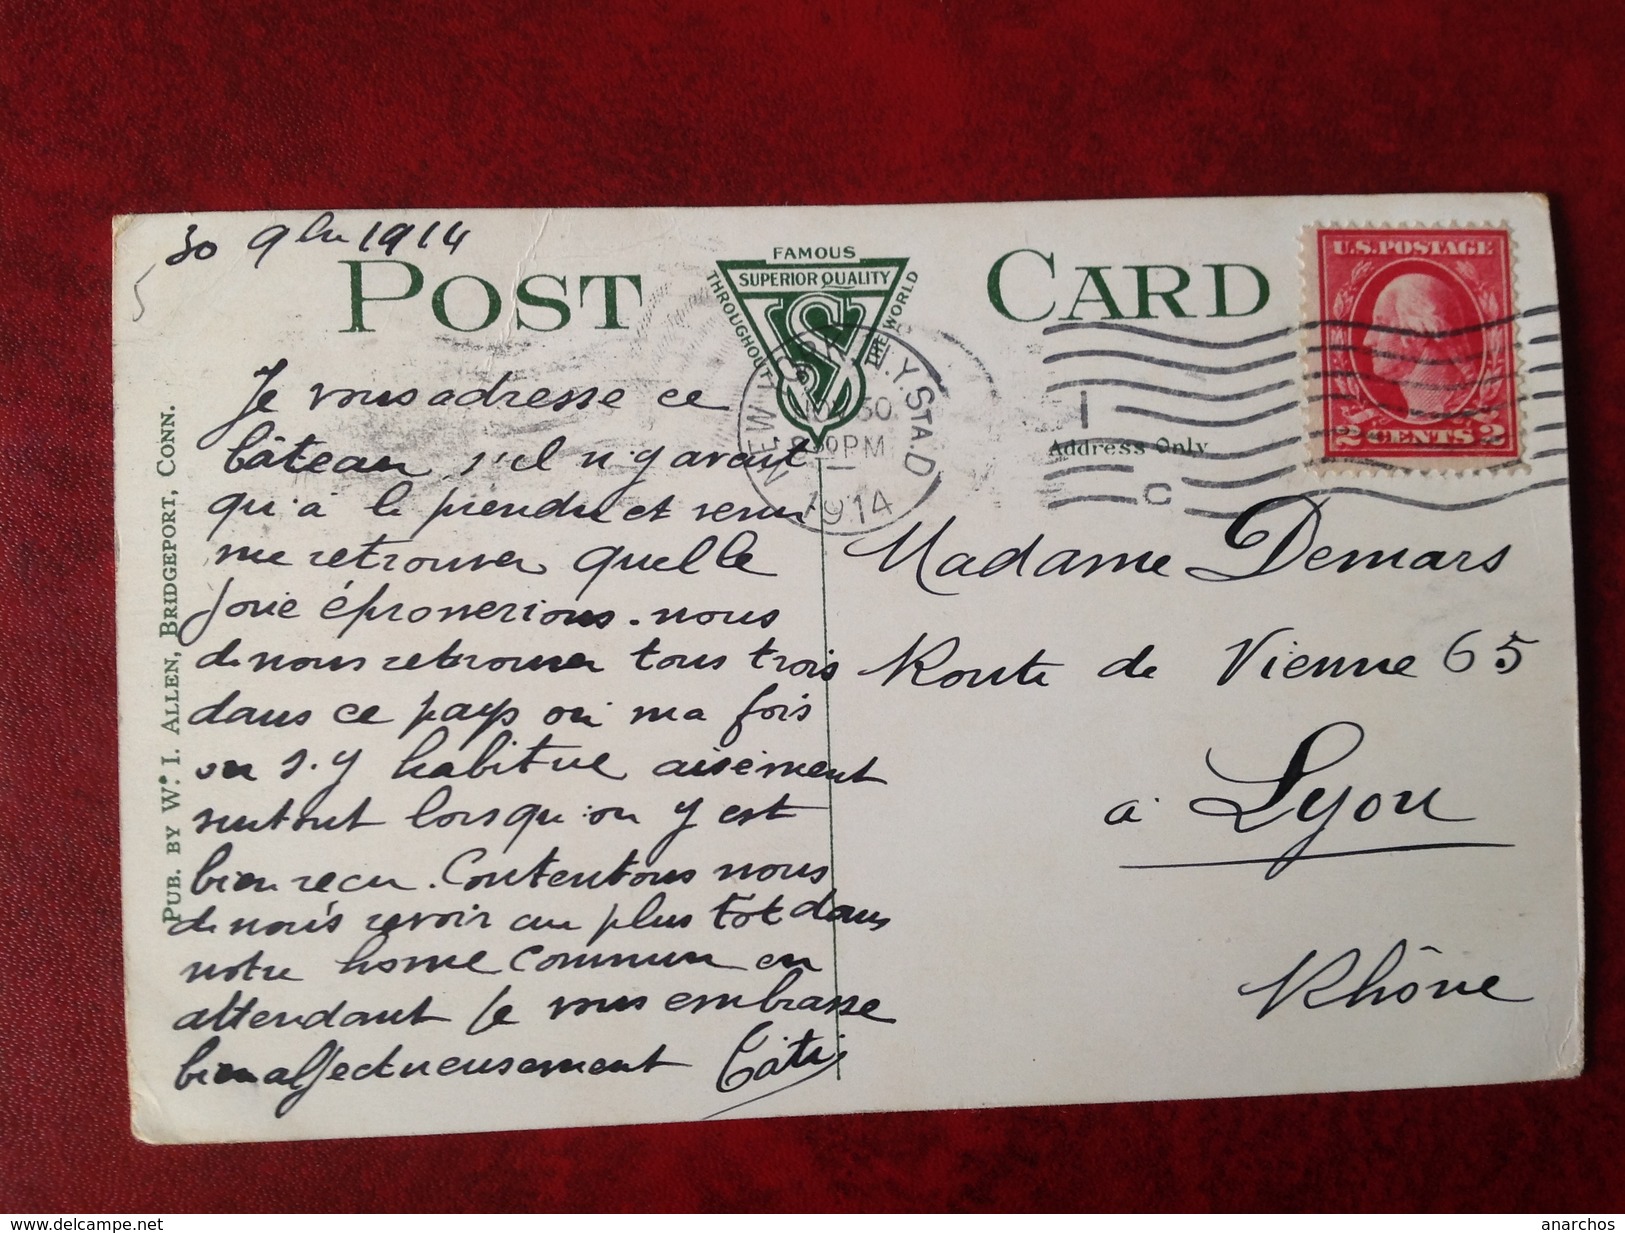 30 9bre 1914
POST CARD
FAMOUS
SUPERIOR QUALITY
THROUGHOUT
THE WORLD
NEW YORK, N.Y. STA. D
NOV 30
8 30 PM
1914
1
C
U.S. POSTAGE
2 CENTS 2
Address Only
PUB. BY W. I. ALLEN, BRIDGEPORT, CONN.
5
Je vous adresse ce
bâteau s'il n'y avait
qu'à le prendre et venir
me retrouver quelle
joie éprouverions-nous
de nous retrouver tous trois
dans ce pays où ma fois
on s'y habitue aisément
surtout lorsqu'on y est
bien reçu. Contentons nous
de nous revoir au plus tôt dans
notre home commun en
attendant je vous embrasse
bien affectueusement
Madame Demars
Route de Vienne 65
à Lyon
Rhône
delcampe.net
anarchos